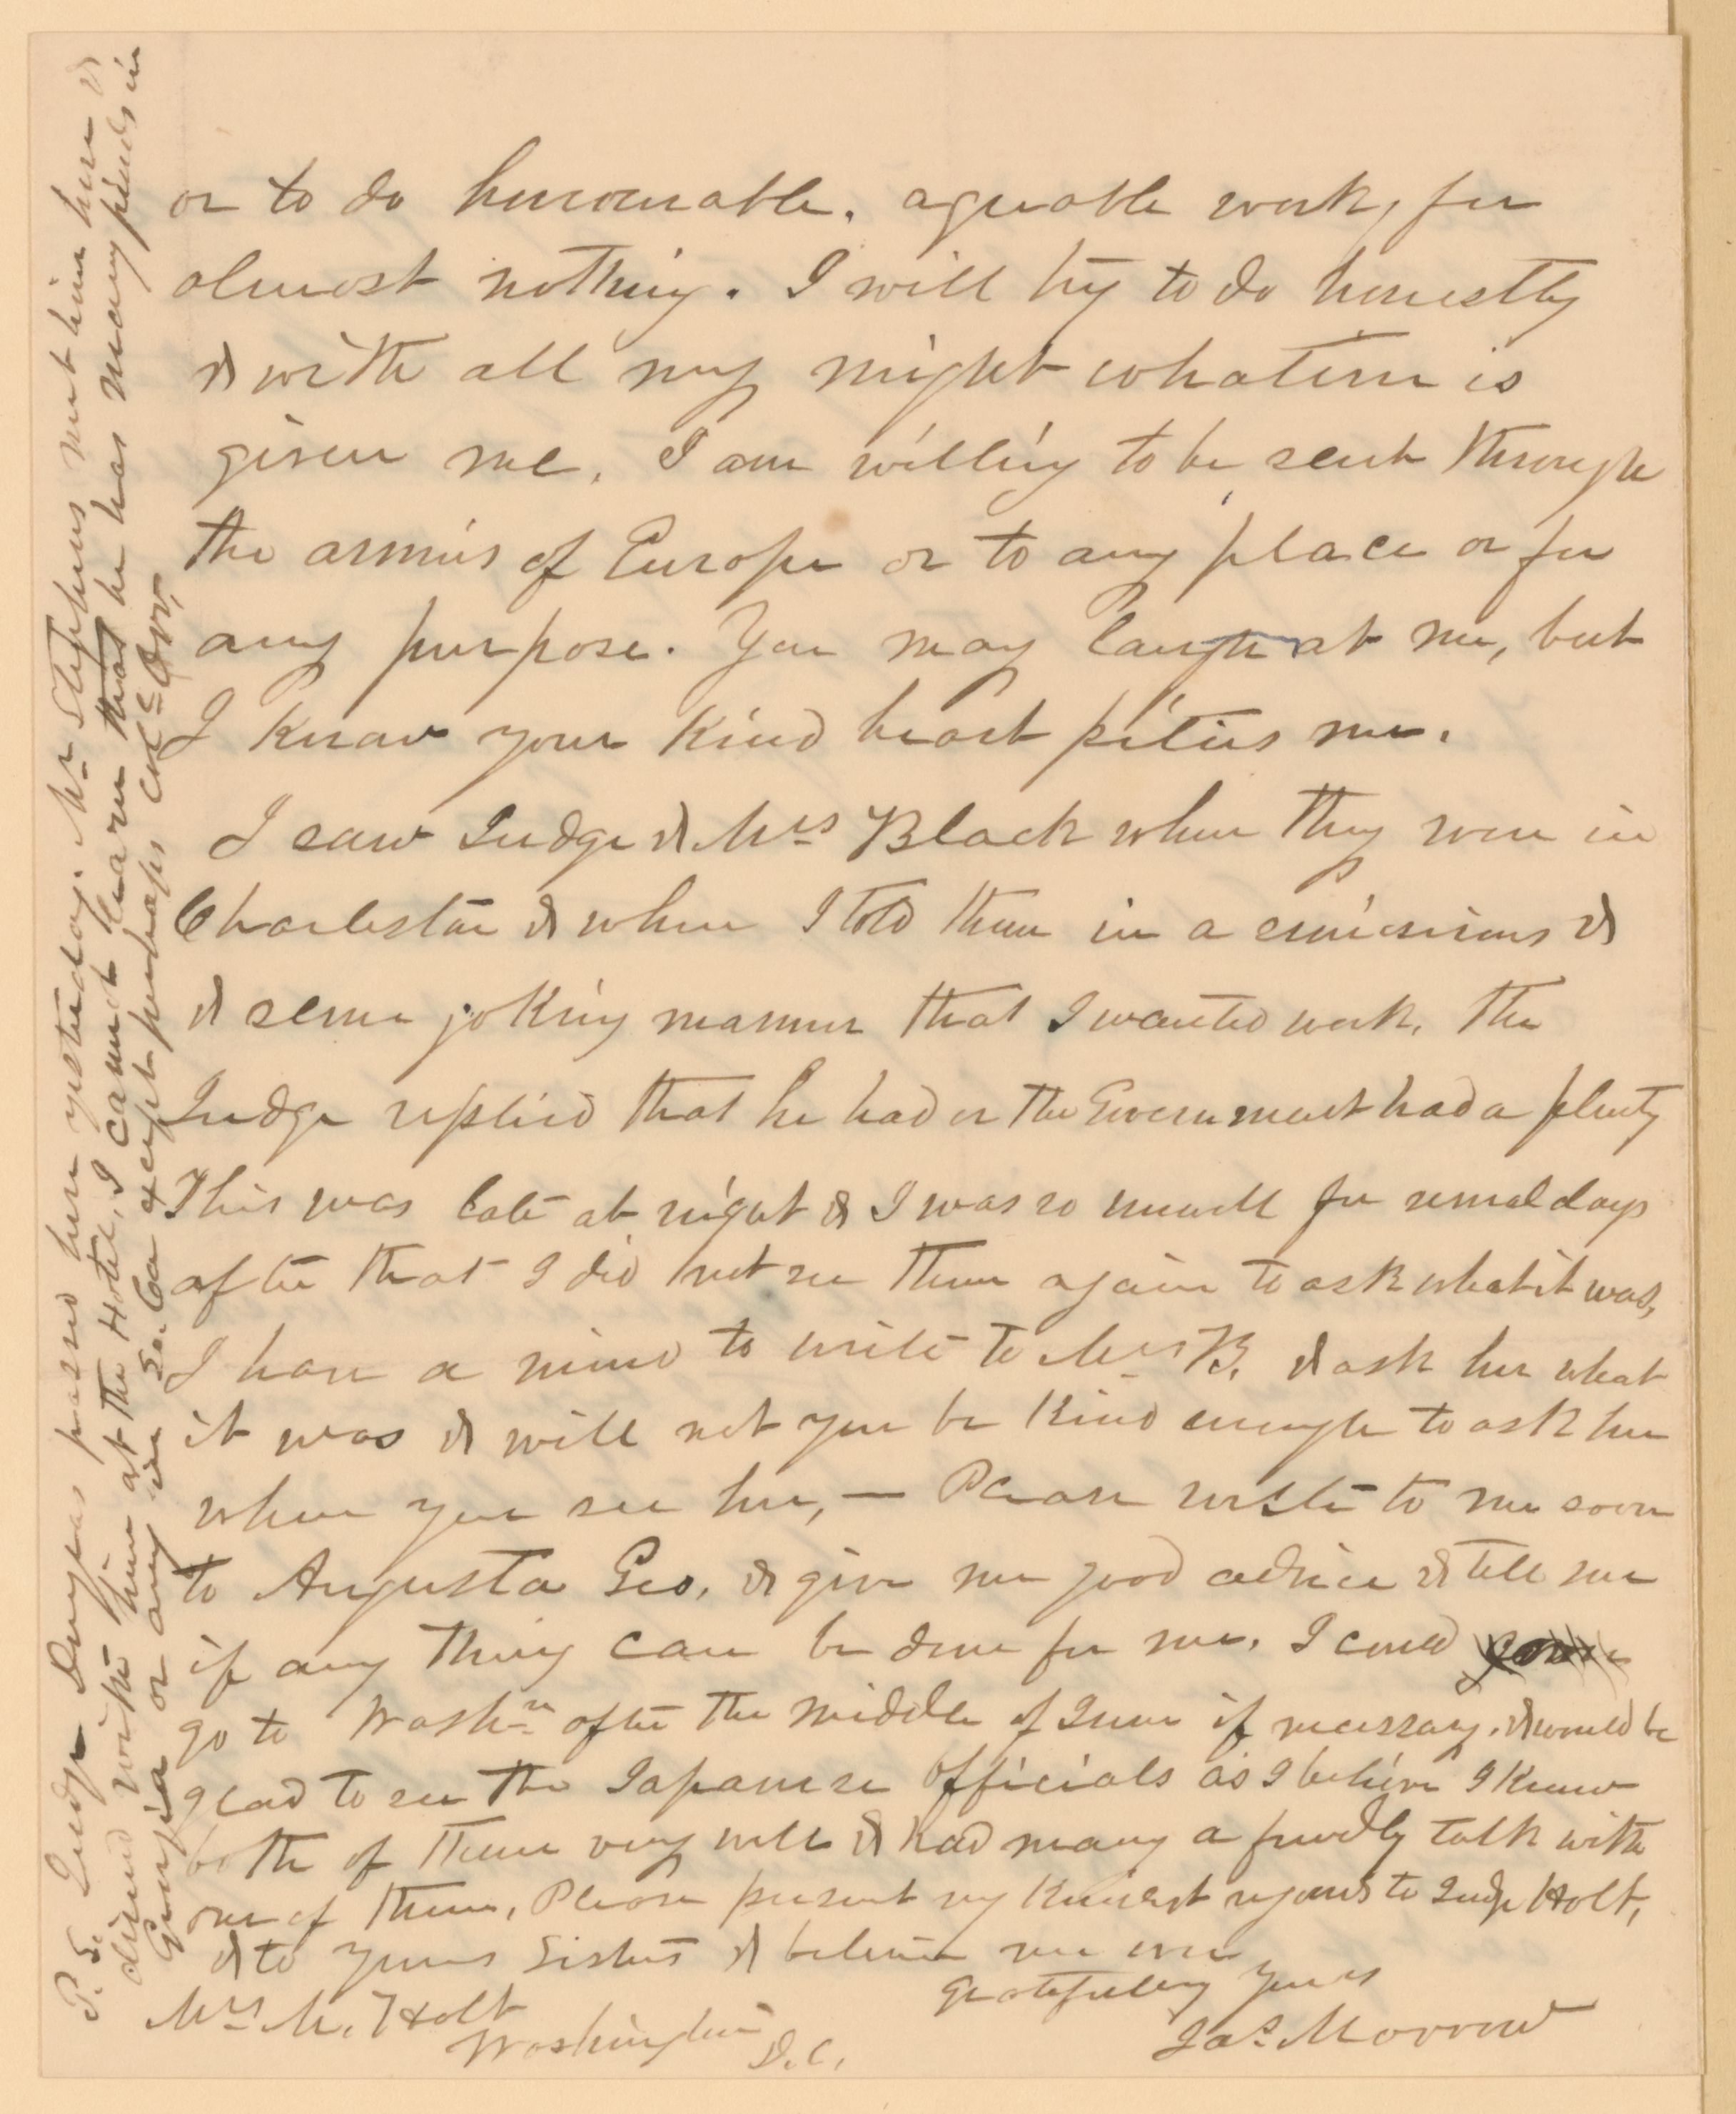 or to do honourable, agreable work, for
almost nothing. I will try to do honestly
& with all my might whatever is
given me. I am willing to be sent through
the armies of Europe or to any place or for
any purpose. You may laugh at me, but
I know your kind heart pities me.
I saw Judge & Mrs Black when they were in
Charleston & when I told them in a &
& semi joking manner that I wanted work, the
Judge replied that he had or the Government had a plenty
This was late at night & I was so unwell for several days
after that I did not see them again to ask what it was,
I have a mind to write to Mrs B. & ask her what
it was & will not you be kind enough to ask her
when you see her, — Please write to me soon
to Augusta Geo. & give me good advice & tell me
if any thing can be done for me. I could
go to Washn after the middle of June if necessary. & would be
glad to see the Japanese officials as I believe I knew
both of them very well & had many a friendly talk with
one of them, Please present my kindest regards to Judge Holt,
& to your Sister & believe me ever
Gratefully Yours
Jas. Morrow
Mrs M. Holt
Washington
D.C.
P.S. Judge Douglas passed here yesterday. Mr Stephens met him here &
dined with him at the Hotel, I cannot learn that he has many friends in
Georgia or any in So. Ca except perhaps Col Orr,